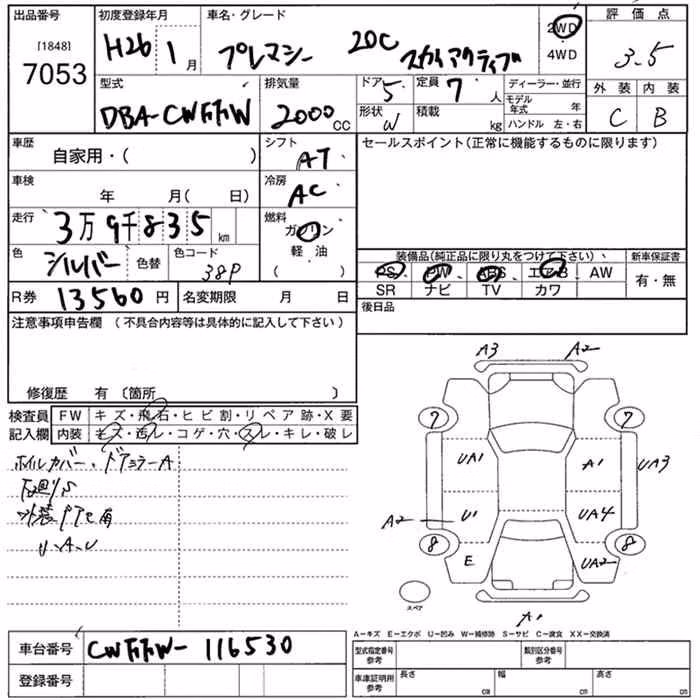 出品番号 初度登録年月 車名・グレード 評価点
[1848] H26 1月 プレマシー 20C スカイアクティブ 2WD 3.5
7053 4WD
型式 排気量 ドア 5 定員 7人 ディーラー・並行 外装 内装
DBA-CWFFW 2000cc 形状 W 積載 kg モデル年式 年 C B
ハンドル 左・右
車歴 シフト セールスポイント(正常に機能するものに限ります)
自家用・( ) AT
車検 冷房
年 月( 日) AC
走行 3万9千835km 燃料
ガソリン
色 シルバー 色替 色コード 38P 軽油
( )
装備品(純正品に限り丸をつけて下さい) 新車保証書
PS PW ABS エアB AW 有・無
SR ナビ TV カワ
R券 13560円 名変期限 月 日 後日品
注意事項申告欄 (不具合内容等は具体的に記入して下さい)
修復歴 有 〔箇所 〕
検査員 FW キズ・飛石・ヒビ割・リペア跡・X要
記入欄 内装 キズ・汚レ・コゲ・穴・スレ・キレ・破レ
ホイルカバー、ドアミラーA
下廻りS
U・A・U
A3 A2
7 7
UA1 A1 UA3
A2 U1 UA4
8 8
E UA2
スペア
A1
A-キズ E-エクボ U-凹み W-補修跡 S-サビ C-腐食 XX-交換済
車台番号 CWFFW-116530
型式指定番号 参考 類別区分番号 参考
登録番号
車庫証明用 参考 長さ cm 幅 cm 高さ cm